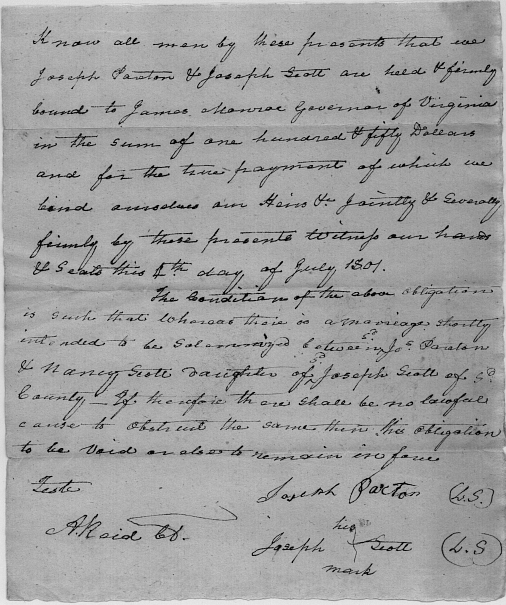 Know all men by these presents that we
Joseph Paxton & Joseph Scott are held & firmly
bound to James Monroe Governor of Virginia
in the sum of one hundred & fifty Dollars
and for the true payment of which we
bind ourselves our Heirs &c Jointly & Severally
firmly by these presents Witness our hands
& Seals this 4th day of July 1801.
The Condition of the above obligation
is such that Whereas there is a marriage shortly
intended to be Solemnized between sd Jos. Paxton
& Nancy Scott daughter of sd Joseph Scott of sd
County – If therefore there shall be no lawful
cause to obstruct the same then this obligation
to be void or else to remain in force
Teste
Joseph Paxton (L.S.)
A. Reid Ct.
his
Joseph Scott (L.S)
mark